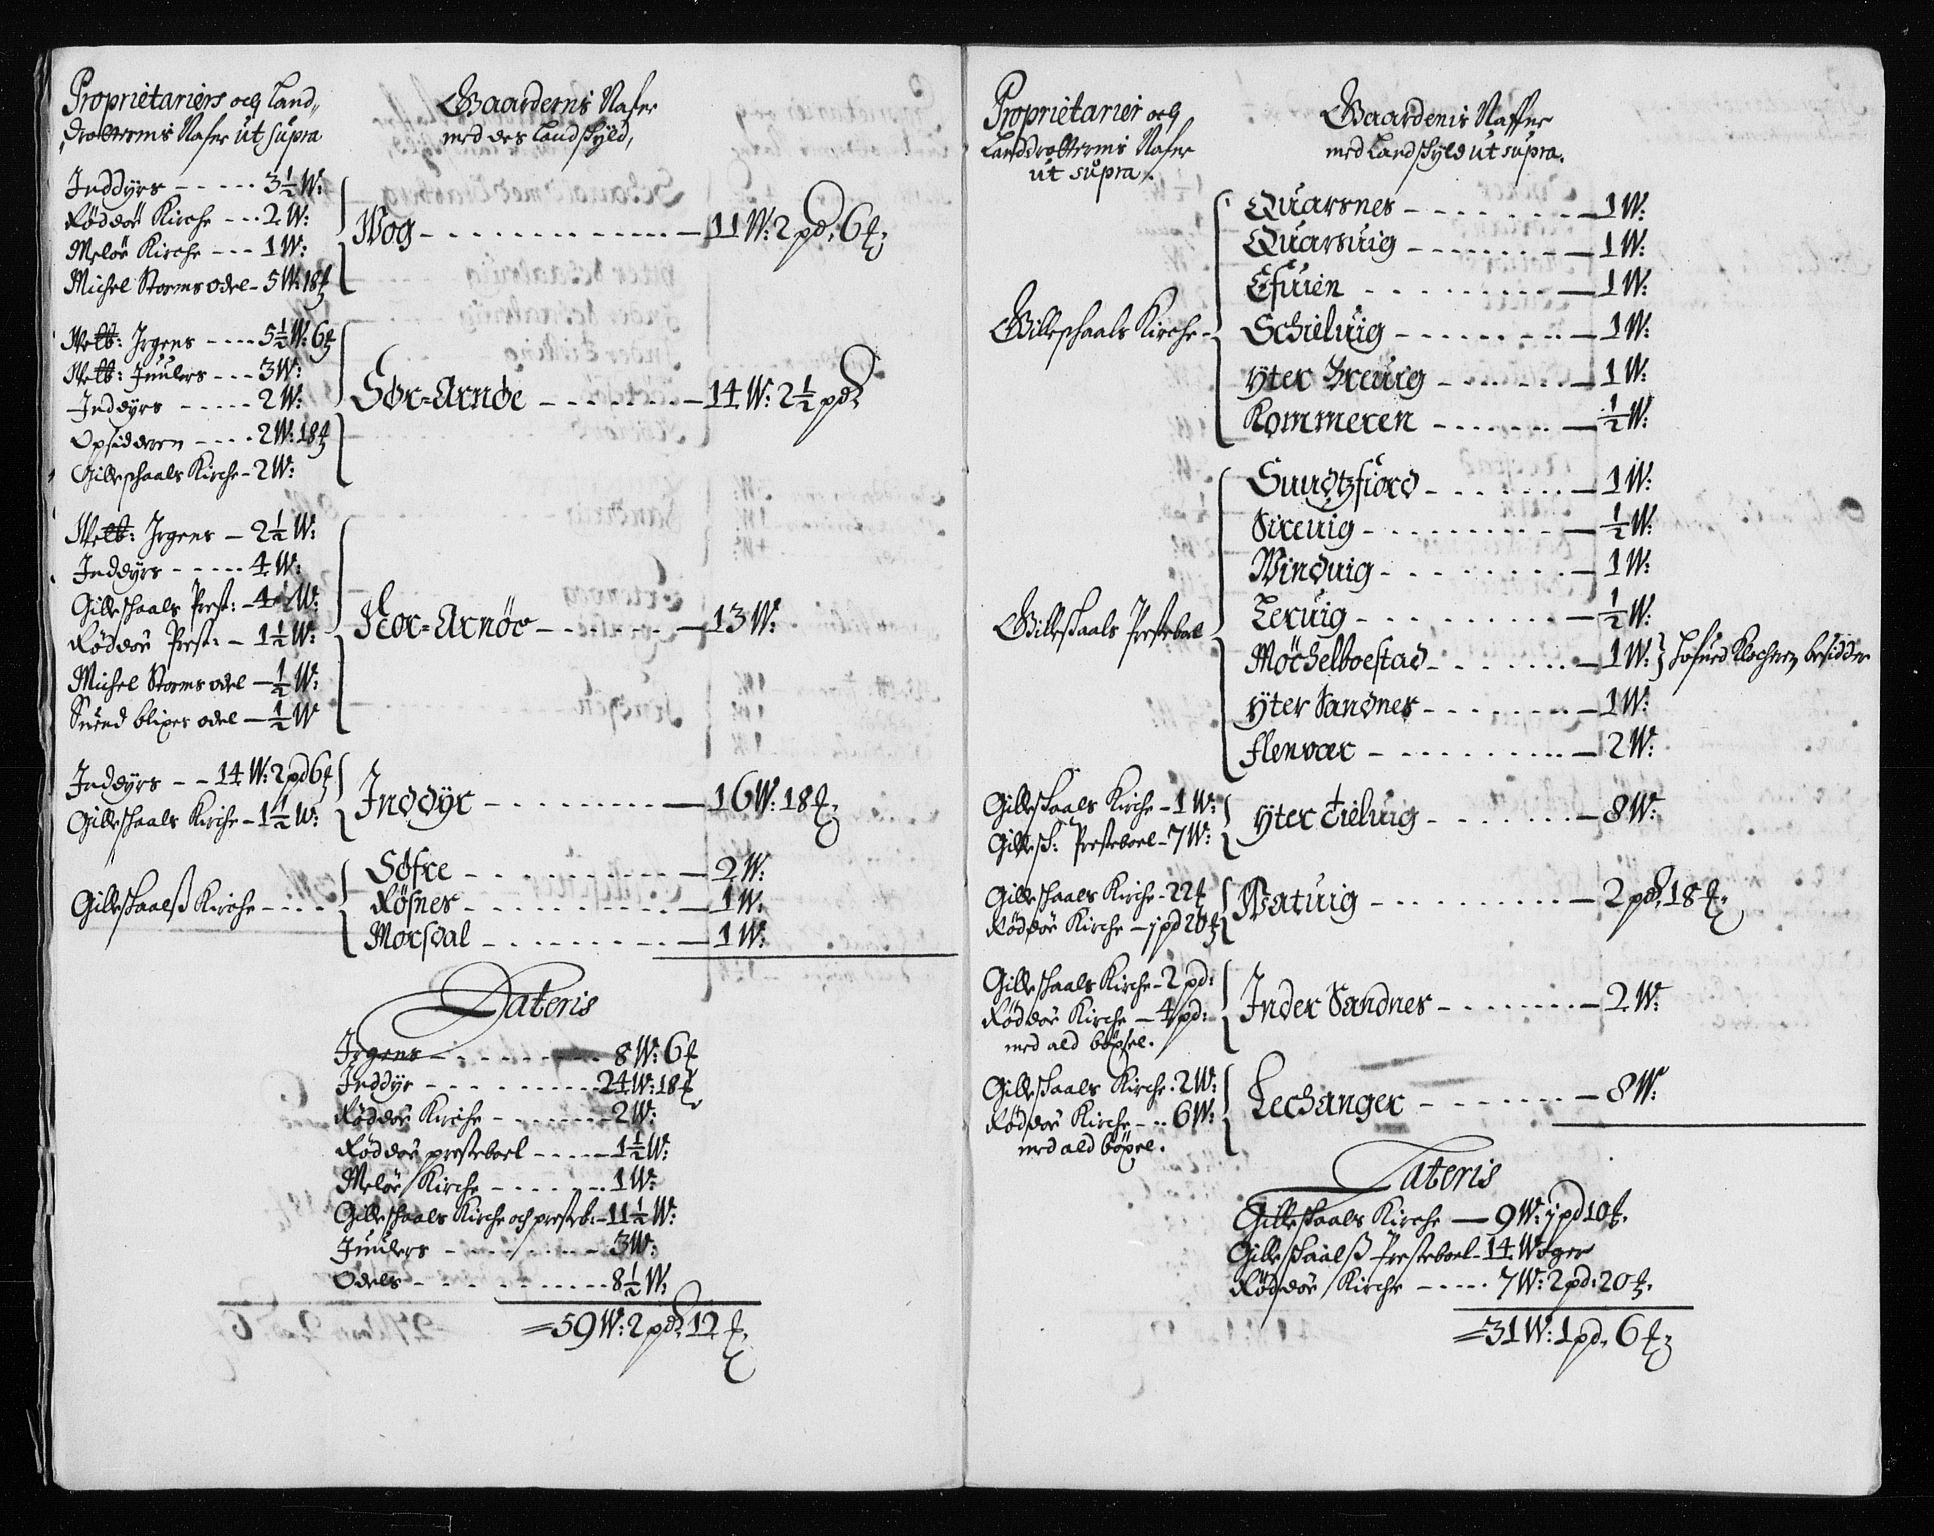 Proprietariers och Land„
drotterns Nafne ut supra
Gaardernis Nafne
med des Landschyld,
Inddyrs - - - - - 3½ W:
Röddöe Kirche - - - 2 W:
Meløe Kirche - - - 1 W:
Michel Storms odel - 5 W: 18 ℔
Wog - - - - - - - 11 W: 2 pd. 6 ℔
Wett: Jrgens - - - - 5½ W: 6 ℔
Wett: Juulers - - - 3 W:
Inddyrs - - - - - 2 W:
Opsideren - - - - 2 W: 18 ℔
Gilleschaals Kirche - 2 W:
Sør=Arnøe - - - - - - 14 W: 2½ pd
Wett: Jrgens - 2½ W:
Inddyrs - - - - - 4 W:
Gilleschaals Prest: - 4 W:
Röddöe Prest: - 1½ W:
Michel Storms odel - ½ W:
Suend blixes odel - ½ W
Nor=Arnöe - - - - - - 13 W:
Inddyrs - - 14 W: 2 pd 6 ℔
Gilleschaals Kirche - 1½ W:
Inddyr - - - - - - - 16 W: 18 ℔
Gilleschaalß Kirche - - - -
Søfre - - - - - - - 2 W:
Røsnes - - - - - - - 1 W:
Morsdal - - - - - - 1 W:
Lateris
Jrgens - - - - - - - 8 W: 6 ℔
Inddyr - - - - - - - 24 W: 18 ℔
Röddöe Kirche - - - - - 2 W:
Röddöe presteboel - - - - 1½ W:
Meløe Kirche - - - - - - 1 W:
Gilleschaals Kirche och presteb: - 11½ W:
Juulers - - - - - - - 3 W:
Odels - - - - - - - 8½ W.
= 59 W: 2 pd. 12 ℔
Proprietarier och
Landdrotterns Nafne
ut supra.
Gaardenis Naffne
med Landschyld ut supra.
Gilleschaals Kirche -
Quarsnes - - - - - - 1 W:
Quarsuig - - - - - - 1 W:
Efuien - - - - - - - 1 W:
Schieluig - - - - - - 1 W:
yter Breuig - - - - - 1 W:
Kommeren - - - - - - ½ W:
Gilleskaals Presteboel
Sundtzfiord - - - - - 1 W:
Sireuig - - - - - - - ½ W:
Winduig - - - - - - - 1 W:
Leruig - - - - - - - ½ W:
Möchelboestad - - - - 1 W: } hofued Klochern besidder
yter Sandnes - - - - - 1 W:
flenvær - - - - - - - 2 W:
Gilleskaals Kirche - 1 W:
Gillesch: Presteboel - 7 W:
yter tieluig - - - - - 8 W:
Gilleschaals Kirche - 22 ℔
Röddöe Kirche - 1 pd 20 ℔
Watuig - - - - - - - 2 pd. 18 ℔
Gilleschaals Kirche - 2 pd:
Röddöe Kirche - 4 pd:
med ald böxsel.
Inder Sandnes - - - - - 2 W:
Gilleschaals Kirche - 2 W:
Röddöe Kirche - - 6 W:
med ald böxel.
Lechanger - - - - - - 8 W:
Lateris
Gilleskaals Kirche — 9 W: 1 pd 10 ℔.
Gilleschaalß Presteboel - 14 Woger
Röddöe Kirche - - - - - 7 W: 2 pd: 20 ℔.
= 31 W: 1 pd. 6 ℔